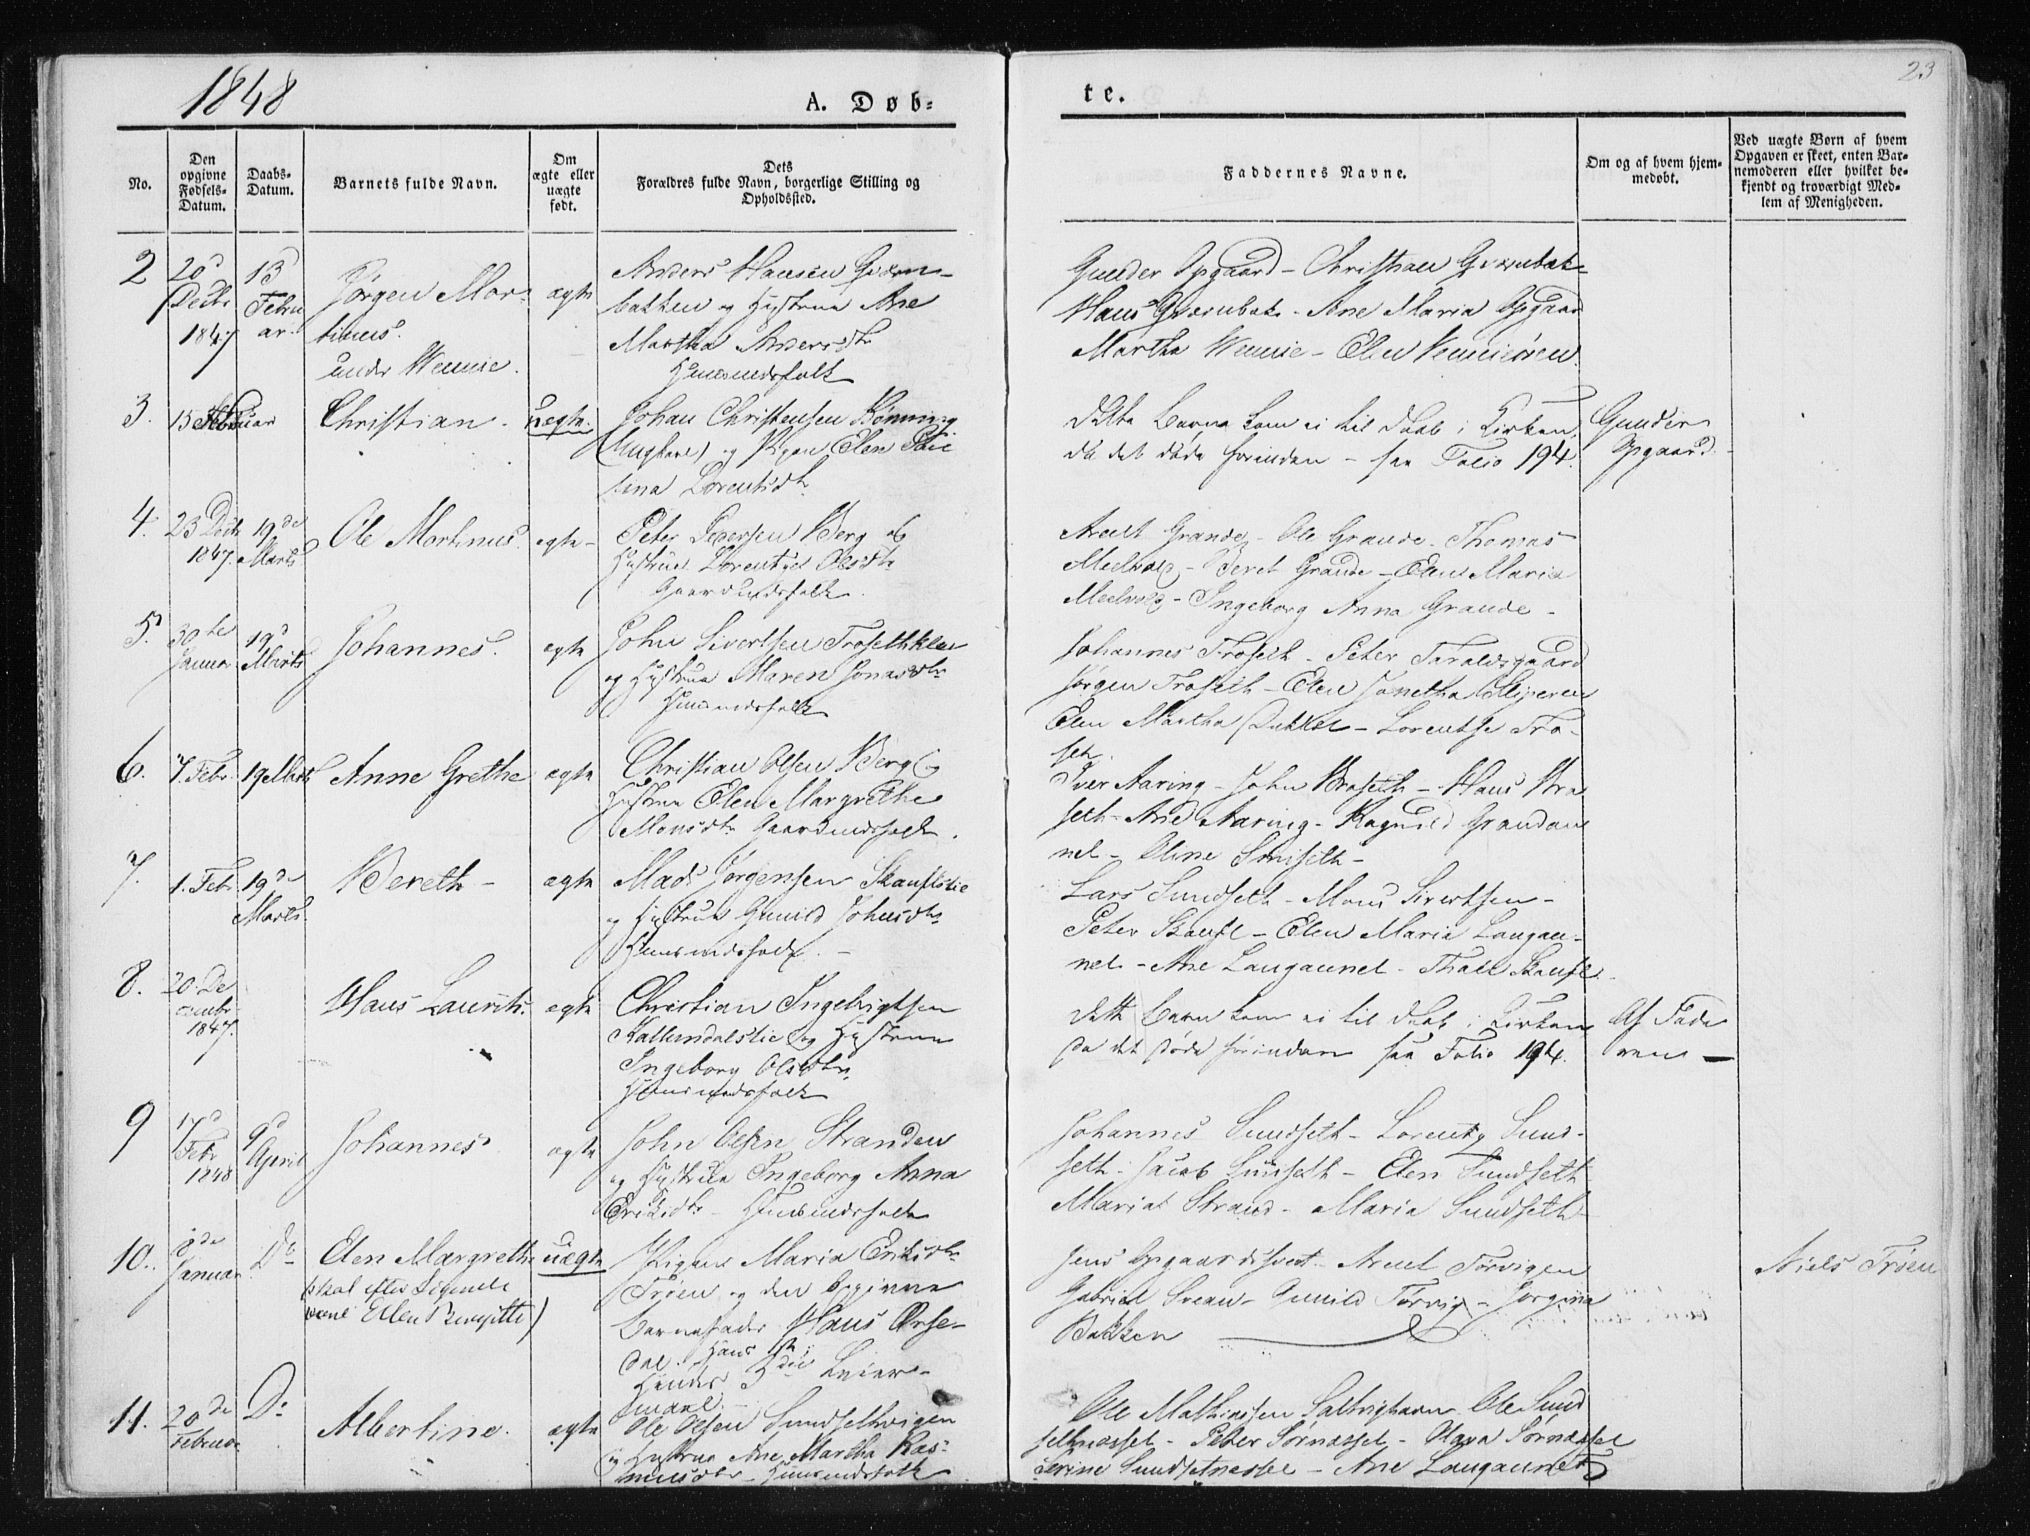 1848
A. Døb=
te.
23
No.
Den
opgivne
Fødsels-
Datum.
Daabs-
Datum.
Barnets fulde Navn.
Om
ægte eller
uægte
født.
Dets
Forældres fulde Navn, borgerlige Stilling og
Opholdssted.
Faddernes Navne.
Om og af hvem hjem-
medøbt.
Ved uægte Børn af hvem
Opgaven er skeet, enten Bar-
nemoderen eller hvilket be-
kjendt og troværdigt Med-
lem af Menigheden.
2
20d
Decbr
1847
13
Febru
ar.
Jørgen Mor-
tinus.
under Wennie.
ægte
Anders Hansen Qværn-
bakken og Hustrue Ane
Martha Andersdtr
Huusmandsfolk
Gunder Opgaard - Christian Qværnbak-
Hans Qværnbak - Ane Maria Opgaard
Martha Wennie - Elen
3.
15 Februar
Christian.
uægte.
Johan Christensen Rønning
(Ungkarl) og Pigen Elen
Lorentsdtr
Dette Barn kom ei til Daab i Kirken,
da det døde forinden - see Folio 194.
Gunder
Opgaard.
4.
23 Decbr
1847.
19de
Marts
Ole Martinus.
egte -
Peter Pedersen Berg og
Hustrue Olsdtr
Gaardmandsfolk.
Arnt Grande - Ole Grande - Thomas
Meelvold - Beret Grande - Elen Maria
Meelvold - Ingeborg Anna Grande -
5.
30te
Januar
19d
Marts
Johannes.
ægte
John Sivertsen
og Hustrue Maren Jonasdtr
Huusmandsfolk
Johannes Troseth - Peter Taraldsgaard
Jørgen Troseth - Elen Janetha
Elen Martha - Lorentse Tro-
seth.
6.
7. Febr.
19 Marts
Anne Grethe
ægte
Christian Olsen Berg og
Hustrue Elen Margrethe
Monsdtr Gaardmandsfolk.
Iver Aaring - John Braseth - Hans Bra
seth - Ane Aaring - Ragnild
nel - Oline
7.
1. Febr.
19de
Marts.
Bereth -
ægte
Mads Jørgensen
og Hustrue Gunild Johnsdtr
Huusmandsfolk. -
Lars Sundseth - Mons Sivertsen -
Peter - Elen Maria Langan-
nel - Ane Langaunel -
8.
20 De
cembr
1847.
Hans Laurits.
egte
Christian Ingebrigtsen
og Hustrue
Ingeborg Olsdtr,
Huusmandsfolk
Dette Barn kom ei til Daab i Kirken,
da det døde forinden see Folio 194.
Af Fade
ren -
9
17d
Febr
1848
9d
April
Johannes
ægte
John Olsen Stranden
og Hustrue Ingeborg Anna
Eriksdtr - Huusmandsfolk
Johannes Sundseth - Lorentz Sund-
seth - Jacob Sundseth - Elen Sundseth
Maria Strand - Maria Sundseth
10.
8de
Januar
Do
Elen Margrethe
(skal efter Sigende
være Elen Birgitte)
uægte
Pigen Maria Eriksdtr
Trøen og den opgivne
Barnefader Hans Orse-
dal. Hans 1ste;
Hendes 3die Leier-
maal.
Jens - Arnt Torvigen
Gabriel Svean - Gunild Torvig - Jørgina
Bakken
Niels Trøen
11.
20de
Februar
Do
Albertine.
ægte
Ole Olsen Sundsethvigen
og Hustrue Ane Martha Ras-
musdtr - Huusmandsfolk
Ole Mathiassen Saltvighavn - Ole Sund
sethnesset - Peter Sørnesset - Sørnesset
Serine Sundsetnesset - Ane Langaunet